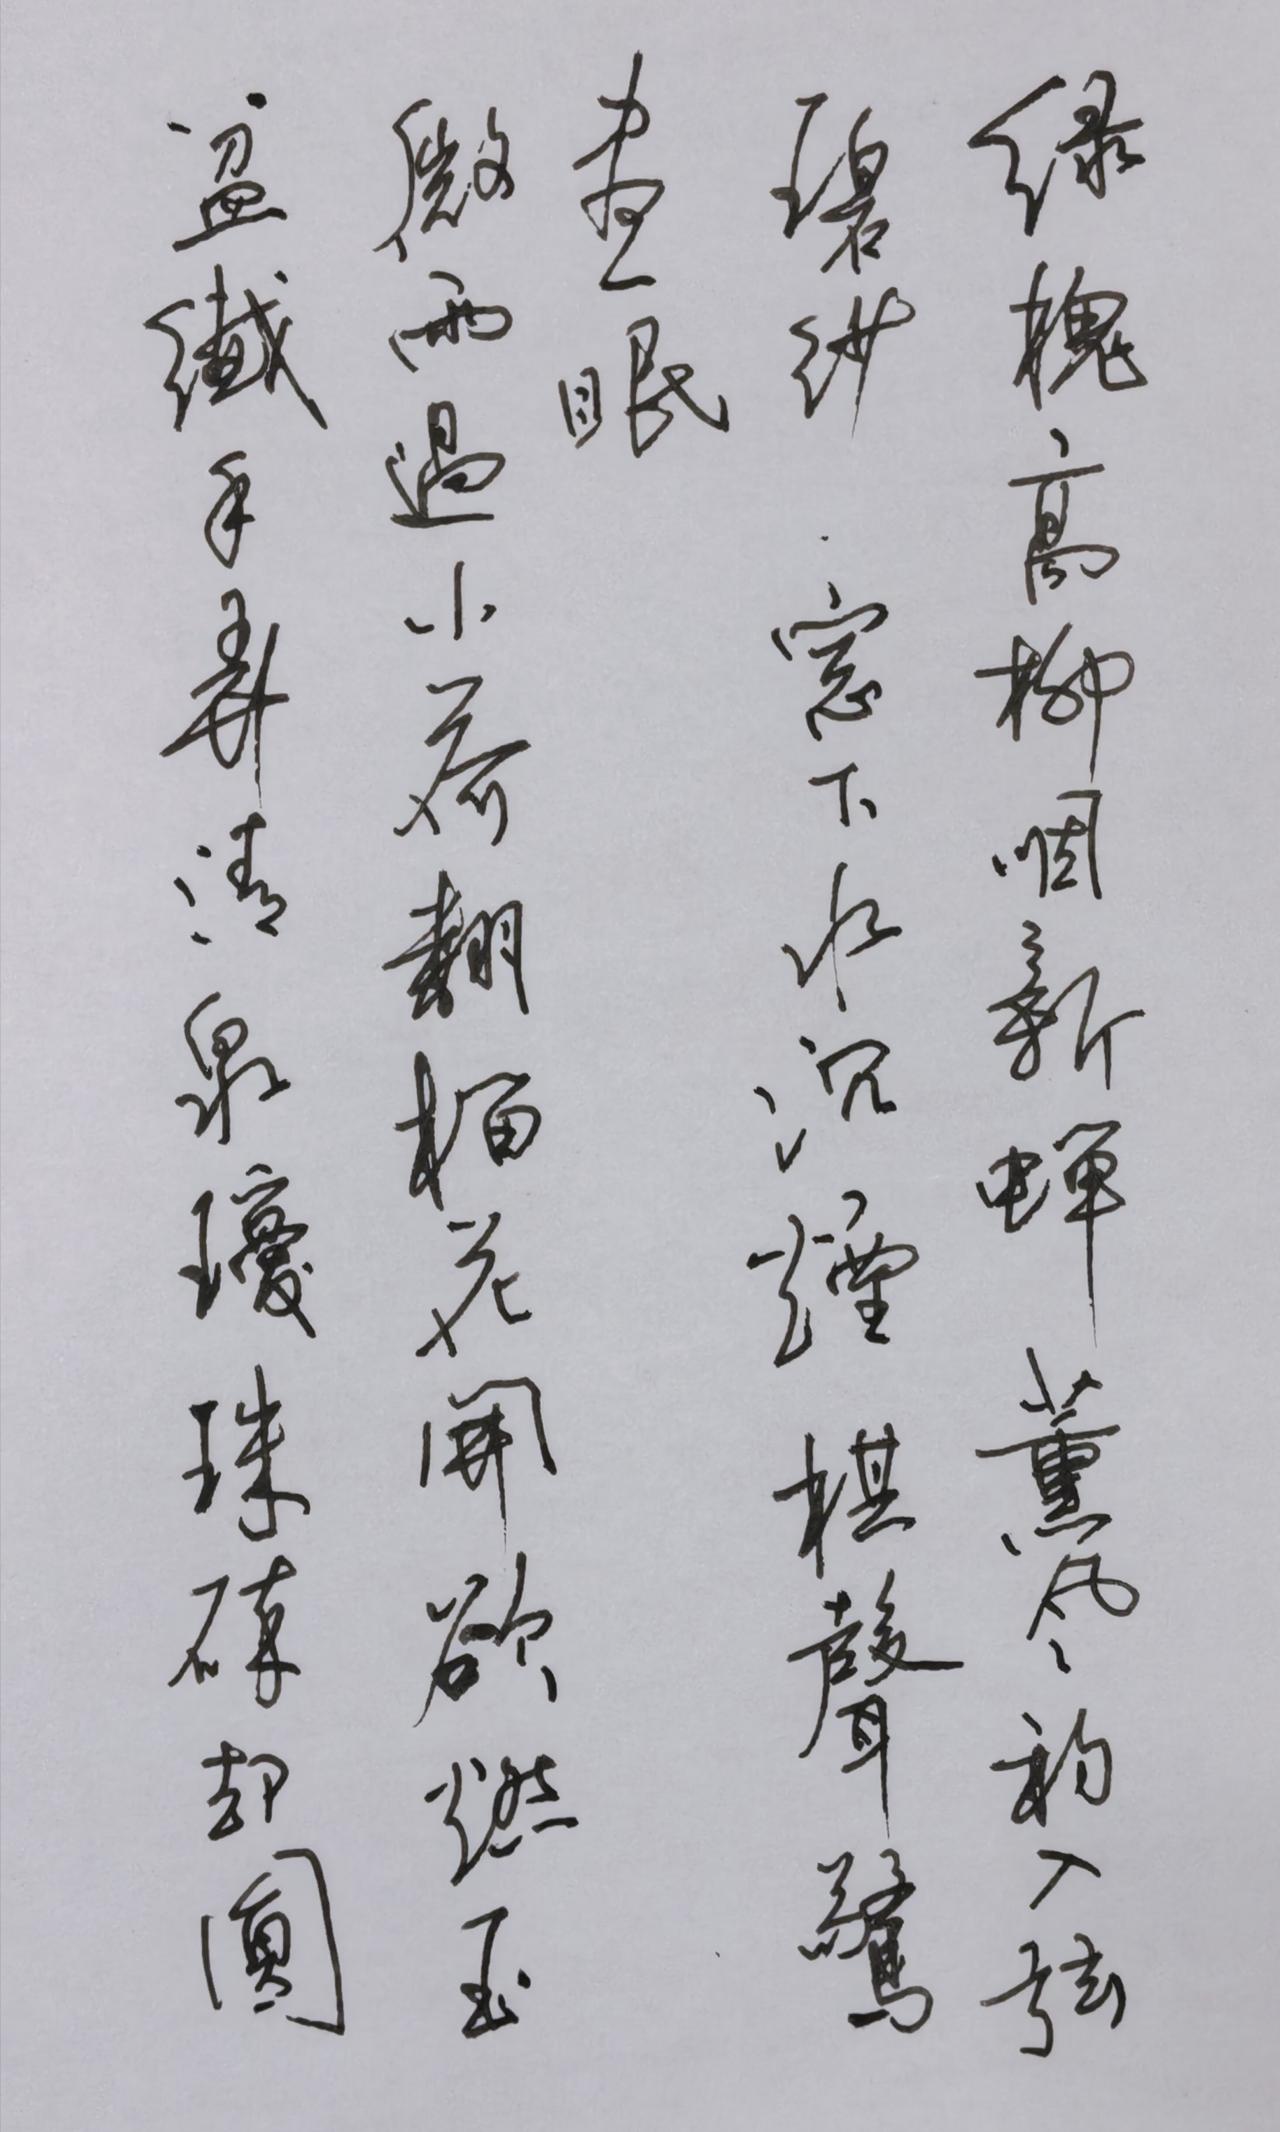 绿槐高柳咽新蝉薰风初入弦
碧纱窓下水沉煙棋聲驚
畫眠
微雨過小荷翻榴花開欲燃玉
盆纖手弄清泉瓊珠碎却圓